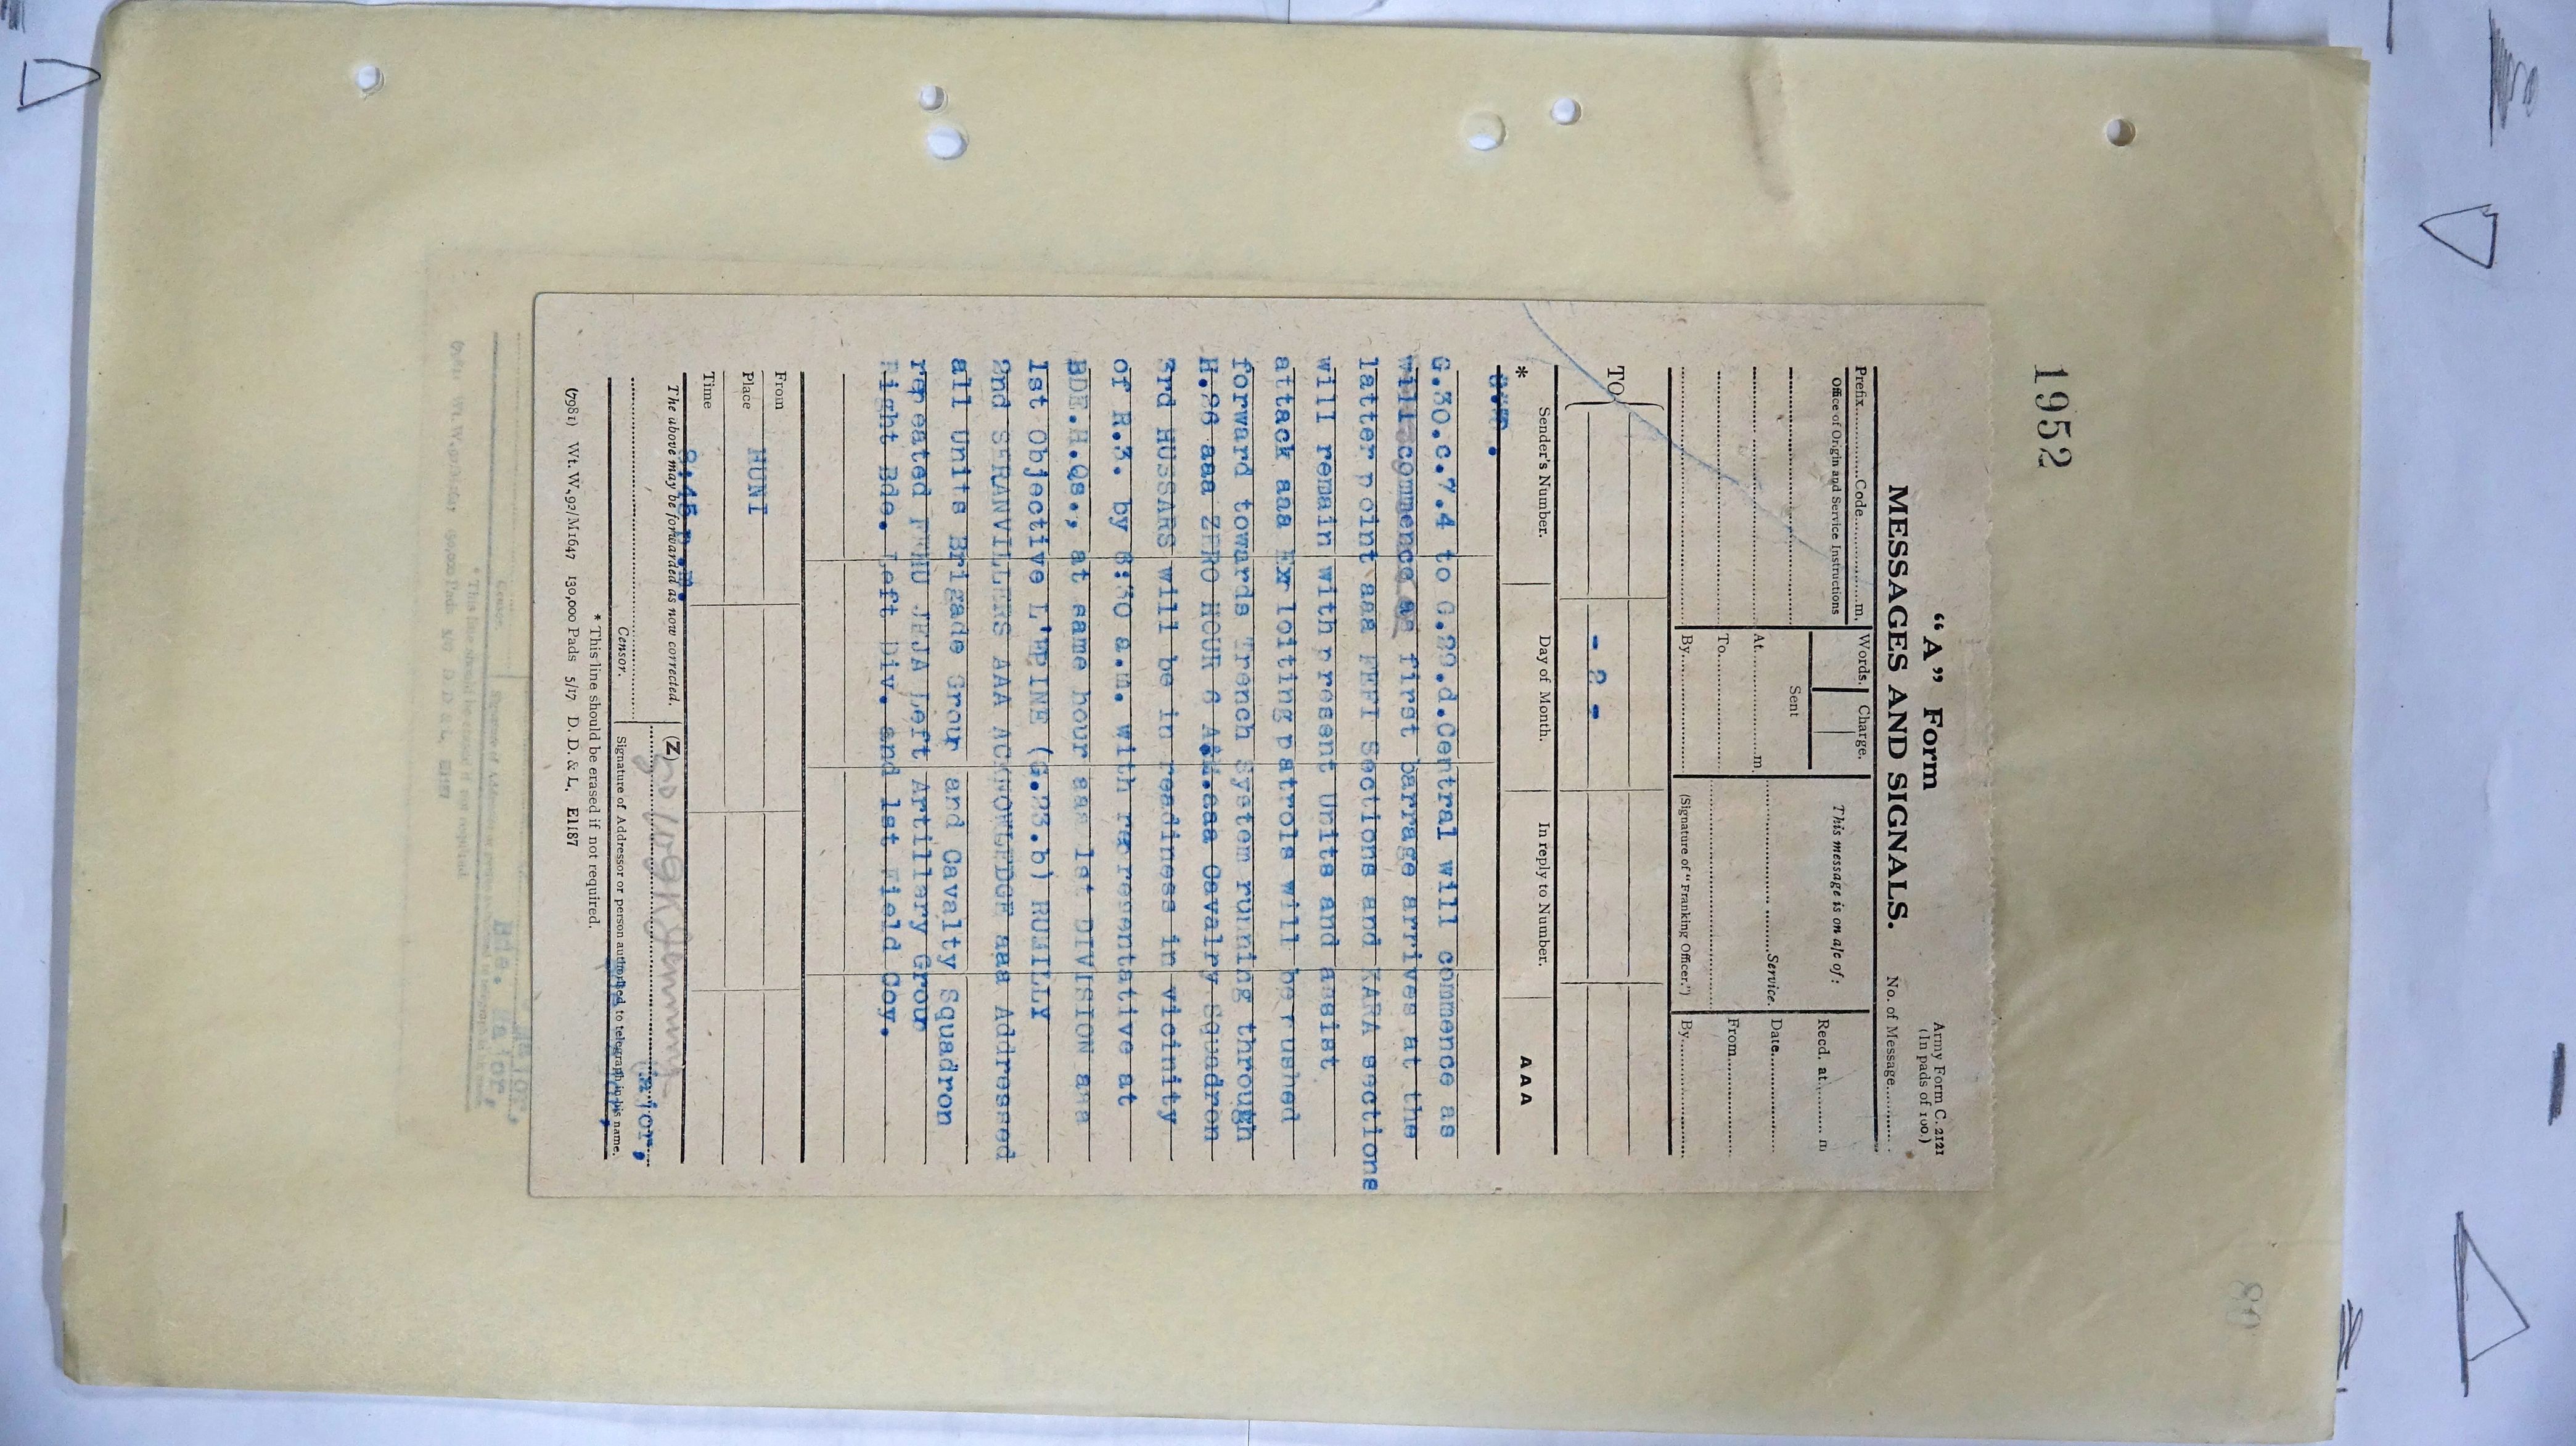 1952
80
"A" Form
Army Form C. 2121
(In pads of 100.)
MESSAGES AND SIGNALS.
No. of Message............
Prefix............Code............m.
Office of Origin and Service Instructions
Words.
Charge.
Sent
At............m.
To............
By............
This message is on a/c of:
............Service.
(Signature of "Franking Officer.")
Recd. at............m
Date............
From............
By............
TO
- 2 -
* Sender's Number.
Day of Month.
In reply to Number.
AAA
G.30.c.7.4 to G.29.d.Central will commence as
will commence as first barrage arrives at the
latter point aaa FEFI Sections and KARA sections
will remain with present Units and assist
attack aaa Exploiting patrols will be rushed
forward towards Trench System running through
H.26 aaa ZERO HOUR 6 A.M.aaa Cavalry Squadron
3rd HUSSARS will be in readiness in vicinity
of R.3. by 6:30 a.m. with representative at
BDE.H.Qs., at same hour aaa 1st DIVISION aaa
1st Objective L'EPINE (G.23.b) RUMILLY
2nd SERANVILLERS AAA ACKNOWLEDGE aaa Addressed
all Units Brigade Group and Cavalty Squadron
repeated FUMU JEJA Left Artillery Group
Right Bde. Left Div. and 1st Field Coy.
From
Place NUNI
Time 8.45 p.m.
The above may be forwarded as now corrected.
(Z)
Major,
Censor.
Signature of Addressor or person authorised to telegraph in his name.
* This line should be erased if not required.
(7981) Wt. W.92/M1647 130,000 Pads 5/17 D. D. & L. E1187